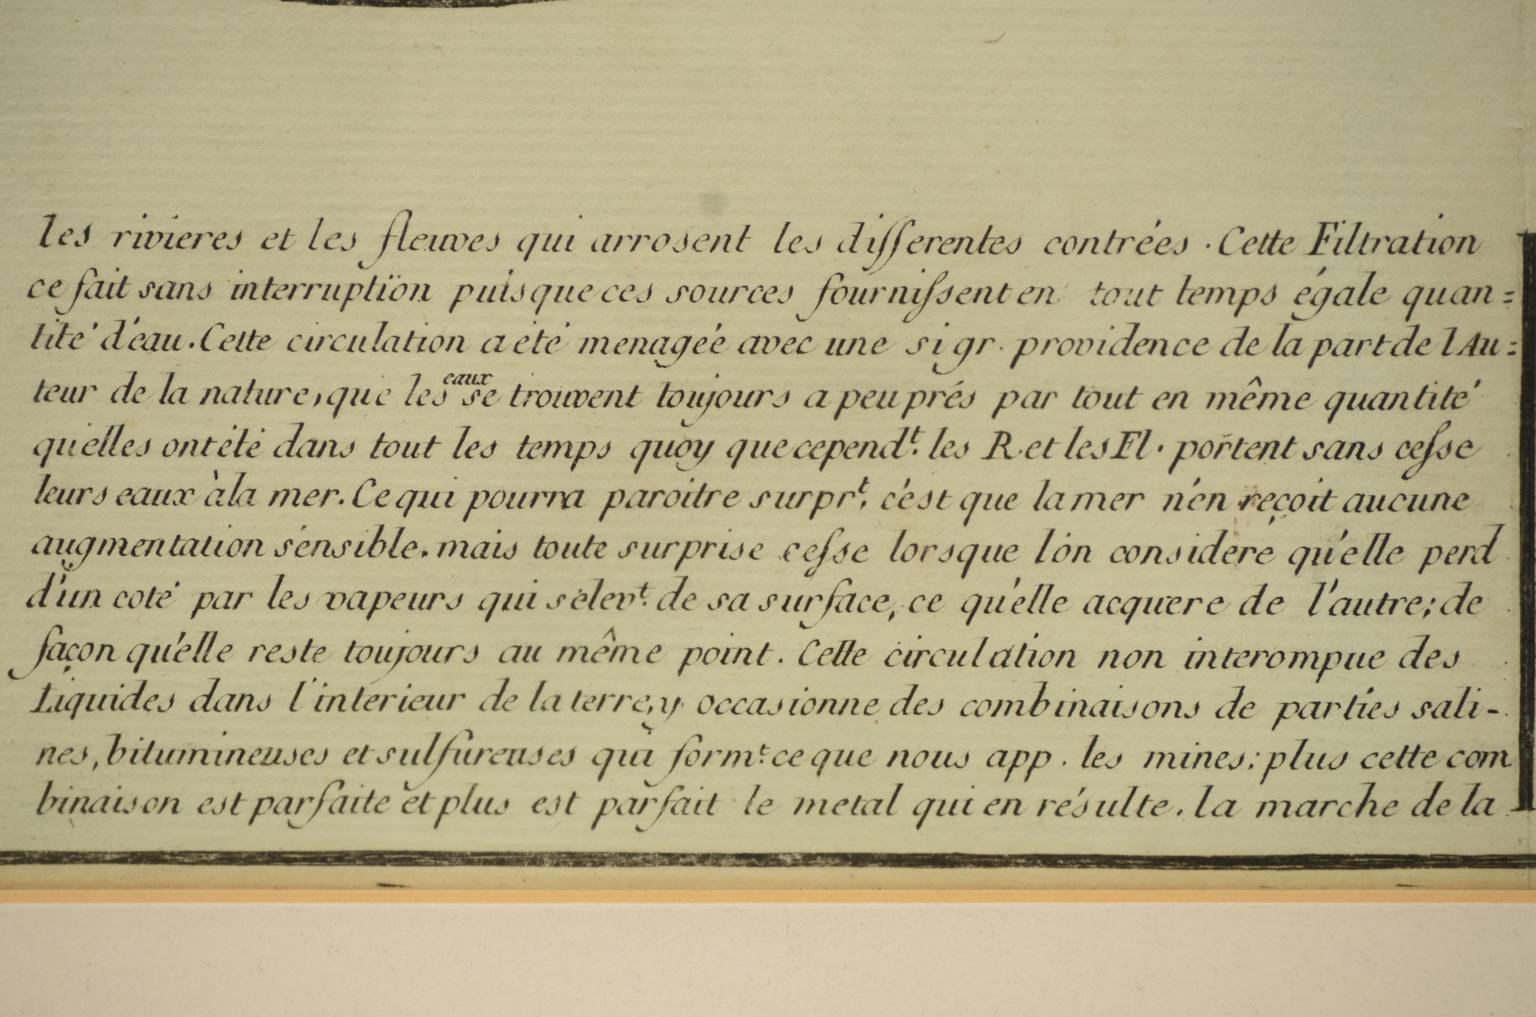 les rivieres et les fleuves qui arrosent les differentes contrées . Cette Filtration
ce fait sans interruption puisque ces sources fournissent en tout temps égale quan=
tité d'éau . Cette circulation a été menagéé avec une si gr. providence de la part de l'Au=
teur de la nature, que les eaux se trouvent toujours a peu prés par tout en même quantité
qu'elles ont été dans tout les temps quoy que cependt. les R. et les Fl. portent sans cesse
leurs eaux à la mer. Ce qui pourra paroitre surprt. c'est que la mer n'en reçoit aucune
augmentation sensible, mais toute surprise cesse lorsque l'on considere qu'elle perd
d'un coté par les vapeurs qui s'elevt. de sa surface, ce qu'elle acquere de l'autre; de
façon qu'elle reste toujours au même point. Cette circulation non interompue des
Liquides dans l'interieur de la terre, y occasionne des combinaisons de parties sali-
nes, bitumineuses et sulfureuses qui formt. ce que nous app. les mines; plus cette com
binaison est parfaite et plus est parfait le metal qui en résulte. la marche de la